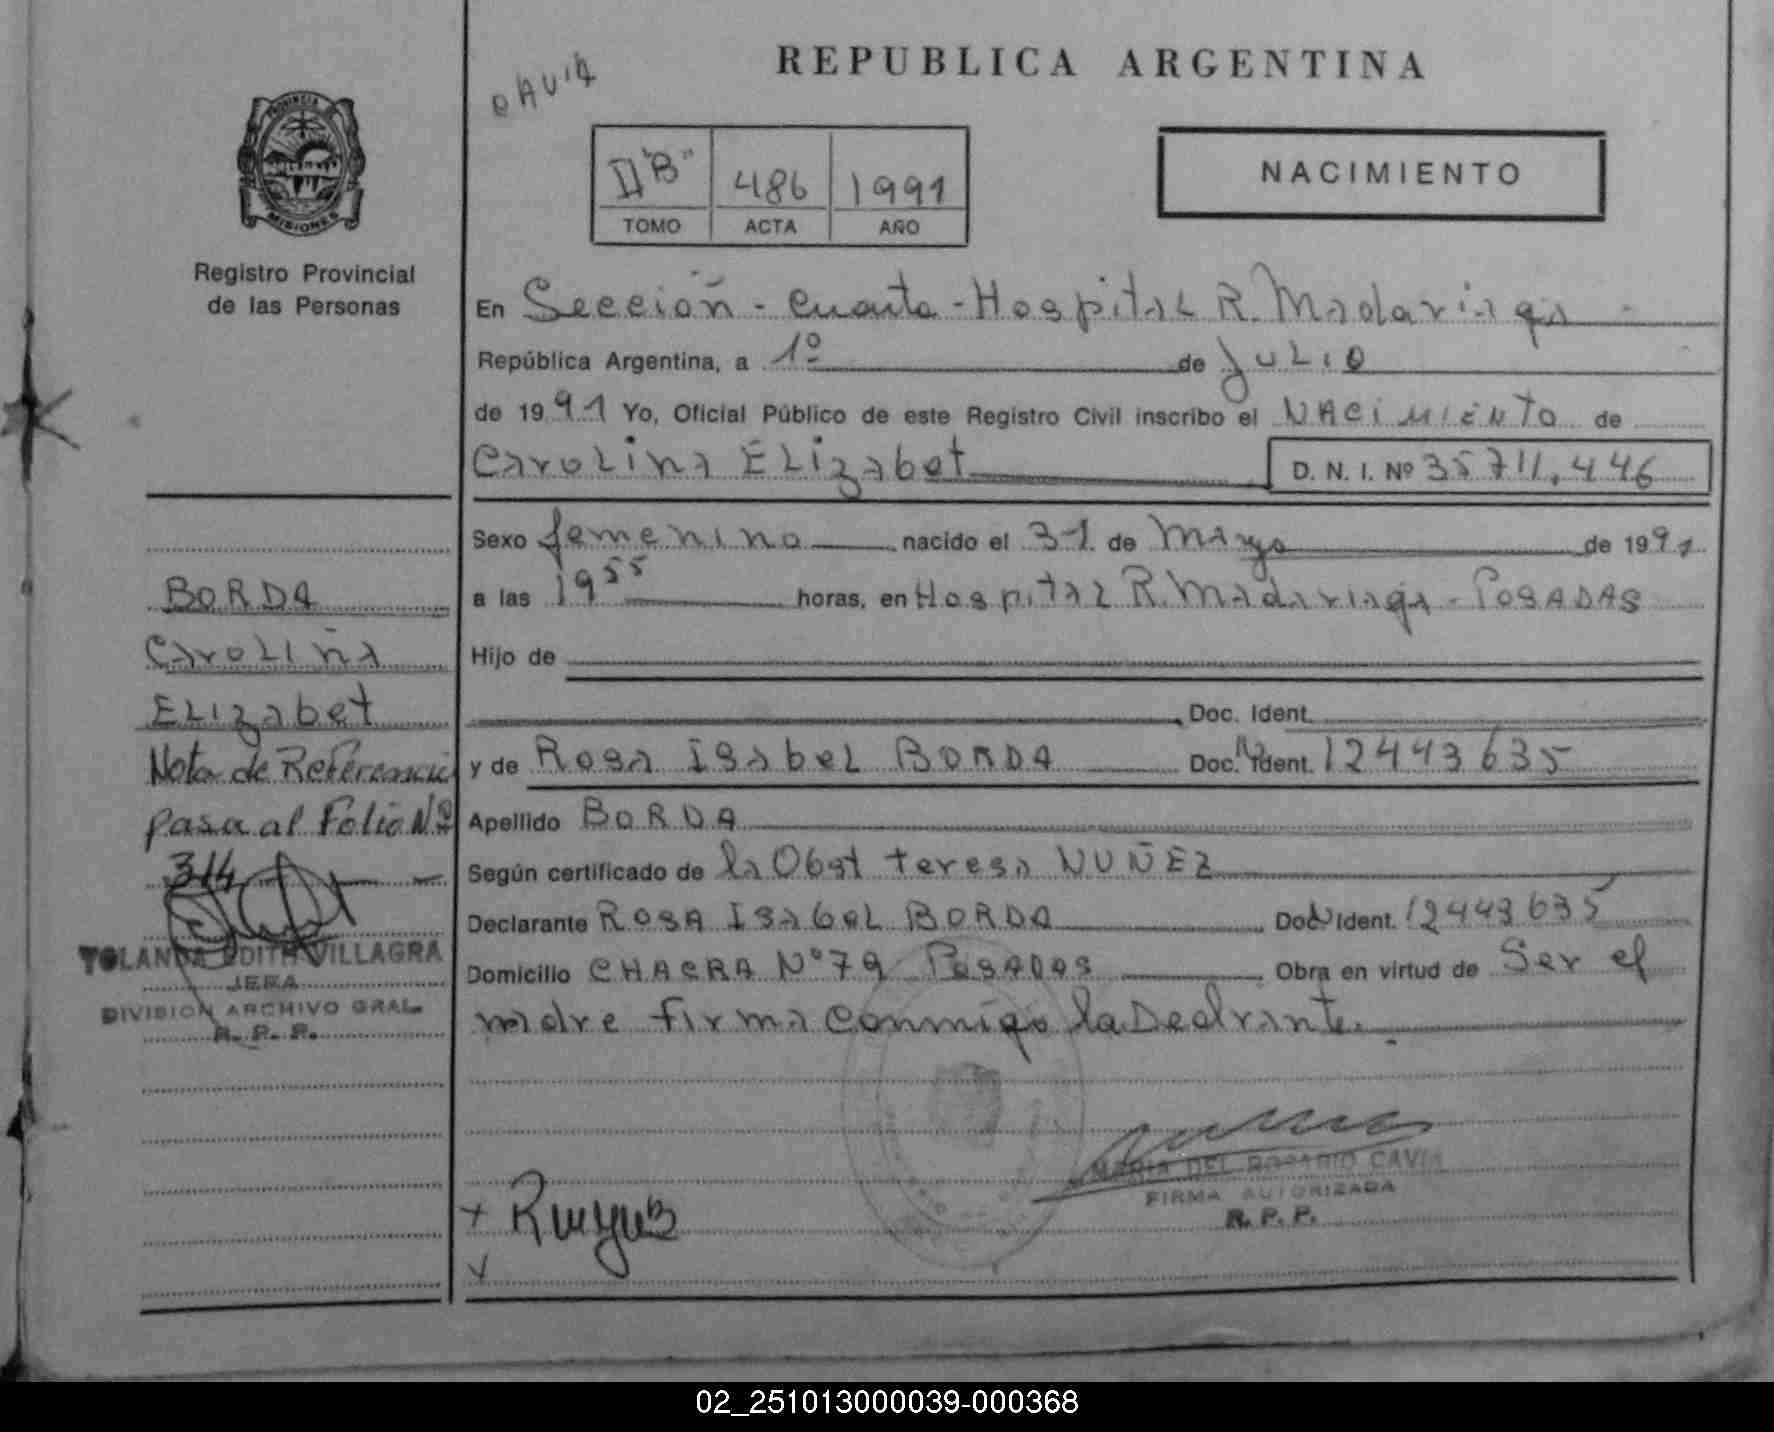 REPUBLICA ARGENTINA
PROVINCIA
MISIONES
Registro Provincial
de las Personas
II "B" 486 1991
TOMO ACTA AÑO
NACIMIENTO
En Sección - Cuarta - Hospital R. Madariaga
República Argentina, a 1º de Julio
de 1991 Yo, Oficial Público de este Registro Civil inscribo el NACIMIENTO de
Carolina Elizabet D. N. I. Nº 35711.446
Sexo femenino nacido el 31 de Mayo de 1991
a las 19 55 horas, en Hospital R. Madariaga - POSADAS
Hijo de
Doc. Ident.
y de Rosa Isabel BORDA Doc. Ident. 12443635
Apellido BORDA
Según certificado de la Obst teresa NUÑEZ
Declarante ROSA ISabel BORDA Doc Ident. 12443635
Domicilio CHACRA Nº 79 POSADAS Obra en virtud de Ser el
madre firma conmigo la Declrante.
MARIA DEL ROSARIO CAVIA
FIRMA AUTORIZADA
R. P. P.
BORDA
Carolina
Elizabet
Nota de Referencia
pasa al Folio Nº
314
YOLANDA EDITH VILLAGRA
JEFA
DIVISION ARCHIVO GRAL.
R. P. P.
02_251013000039-000368